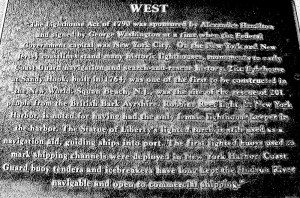 WEST
"The Lighthouse Act of 1790 was sponsored by Alexander Hamilton
and signed by George Washington at a time when the Federal
Government capital was New York City. On the New York and New
Jersey coastline stand many historic lighthouses, monuments to early
Coast Guard navigation and search and rescue history. The lighthouse
at Sandy Hook, built in 1764, was one of the first to be constructed in
the New World. Squan Beach, N.J., was the site of the rescue of 201
people from the British Bark Ayrshire. Robbins Reef Light, in New York
Harbor, is noted for having had the only female lighthouse keeper in
the harbor. The Statue of Liberty's lighted torch itself used as a
navigation aid, guiding ships into port. The first lighted buoys used to
mark shipping channels were deployed in New York Harbor. Coast
Guard buoy tenders and icebreakers have long kept the Hudson River
navigable and open to commercial shipping."